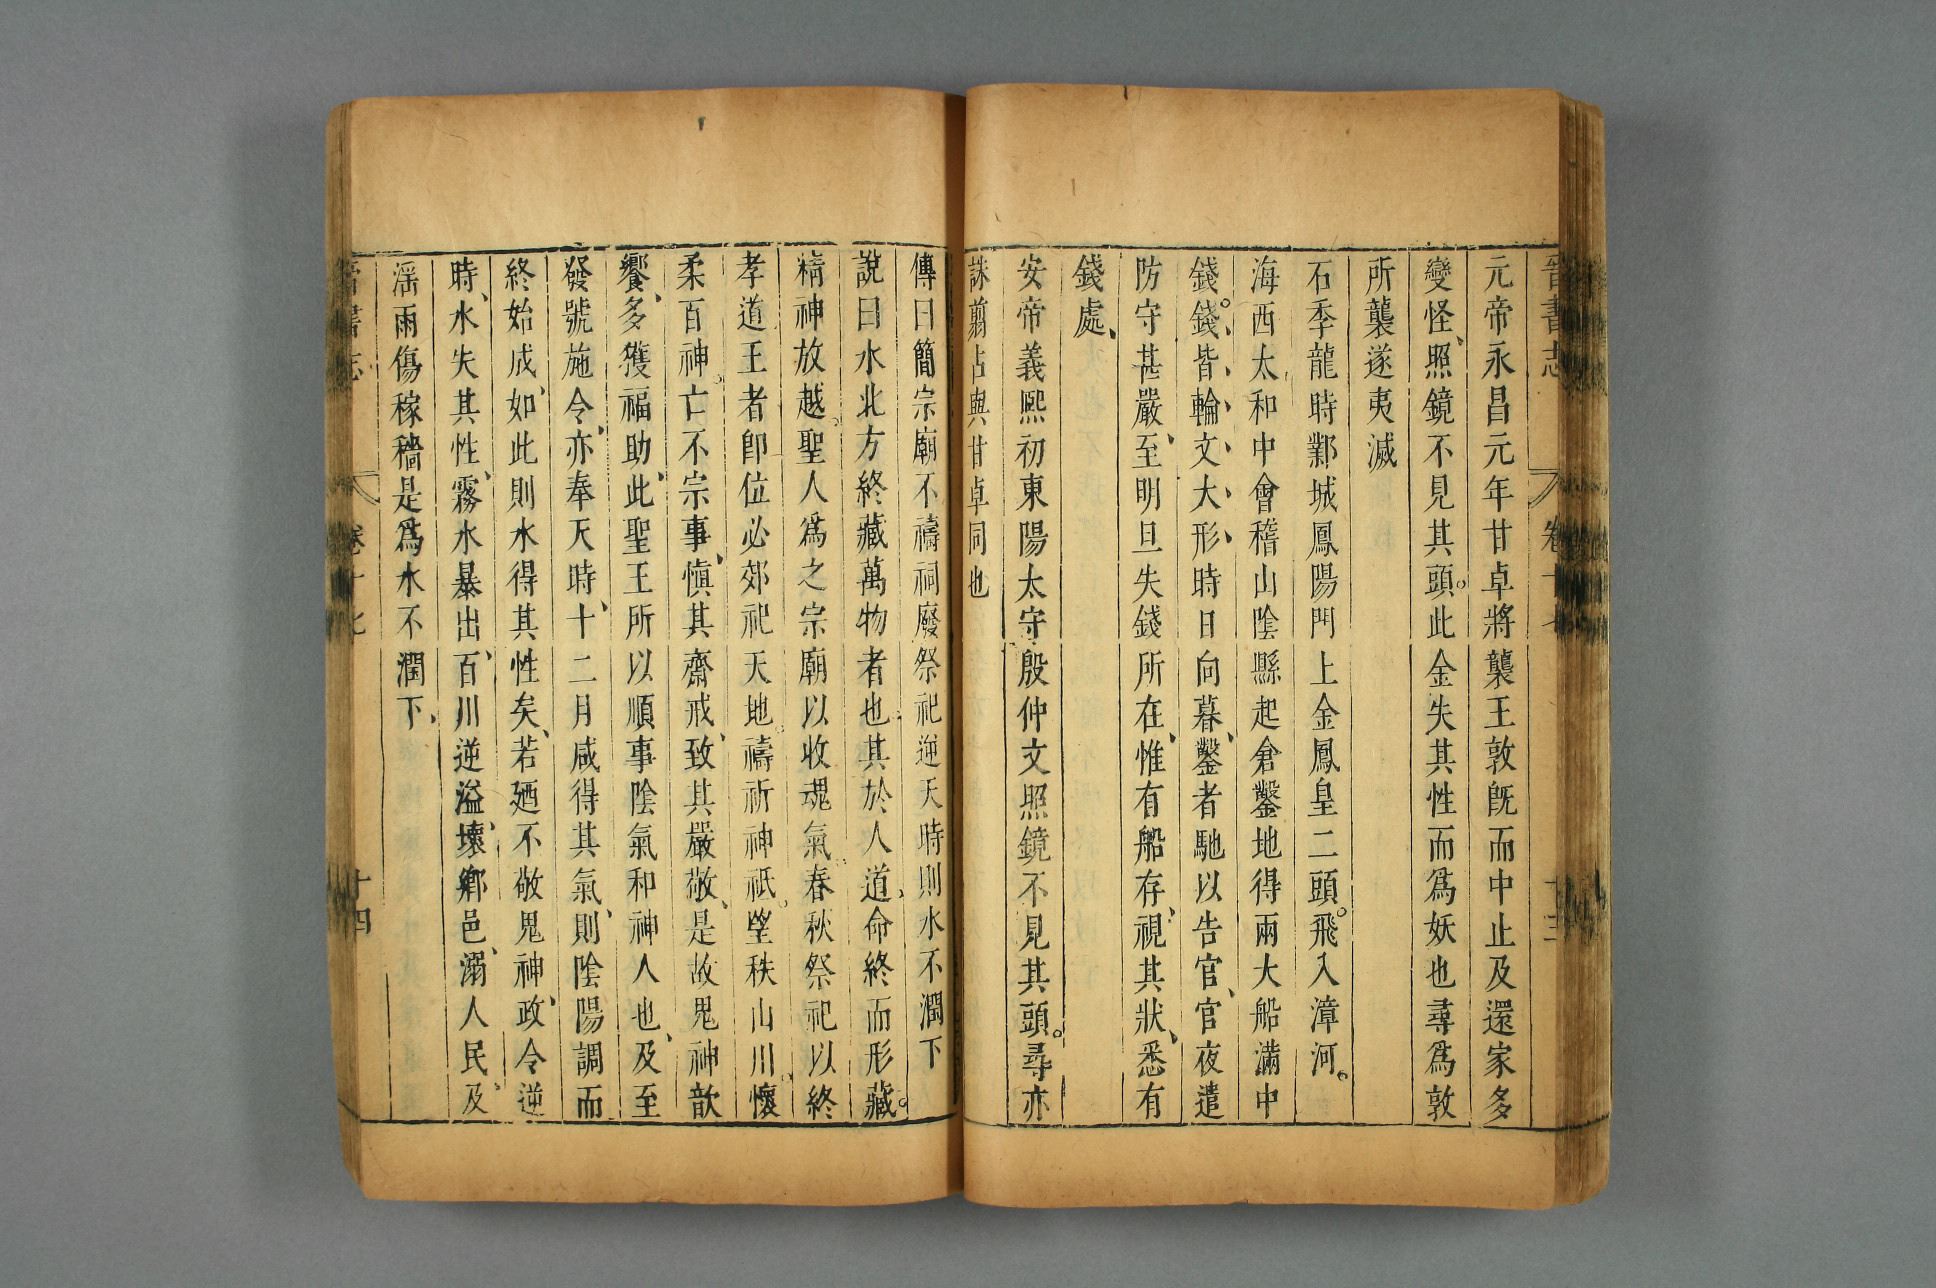 晉書志 卷十七 十三
元帝永昌元年甘卓將襲王敦旣而中止及還家多
變怪照鏡不見其頭此金失其性而爲妖也尋爲敦
所襲遂夷滅
石季龍時鄴城鳳陽門上金鳳皇二頭飛入漳河
海西太和中會稽山陰縣起倉鑿地得兩大船滿中
錢錢皆輪文大形時日向暮鑿者馳以告官官夜遣
防守甚嚴至明旦失錢所在惟有船存視其狀悉有
錢處
安帝義熙初東陽太守殷仲文照鏡不見其頭尋亦
誅翦占與甘卓同也
傳曰簡宗廟不禱祠廢祭祀逆天時則水不潤下
說曰水北方終藏萬物者也其於人道命終而形藏
精神放越聖人爲之宗廟以收魂氣春秋祭祀以終
孝道王者卽位必郊祀天地禱祈神祇望秩山川懷
柔百神亡不宗事愼其齋戒致其嚴敬是故鬼神歆
饗多獲福助此聖王所以順事陰氣和神人也及至
發號施令亦奉天時十二月咸得其氣則陰陽調而
終始成如此則水得其性矣若廼不敬鬼神政令逆
時水失其性霧水暴出百川逆溢壞鄉邑溺人民及
淫雨傷稼穡是爲水不潤下
晉書志 卷十七 十四